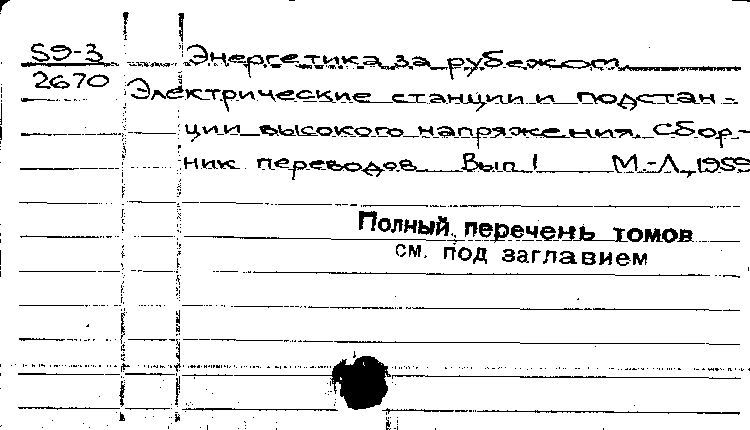 S9-3 Энергетика за рубежом.
2670 Электрические станции и подстан-
ции высокого напряжения. Сбор-
ник переводов. Вып. 1 М.-Л., 1959
Полный перечень томов
см. под заглавием